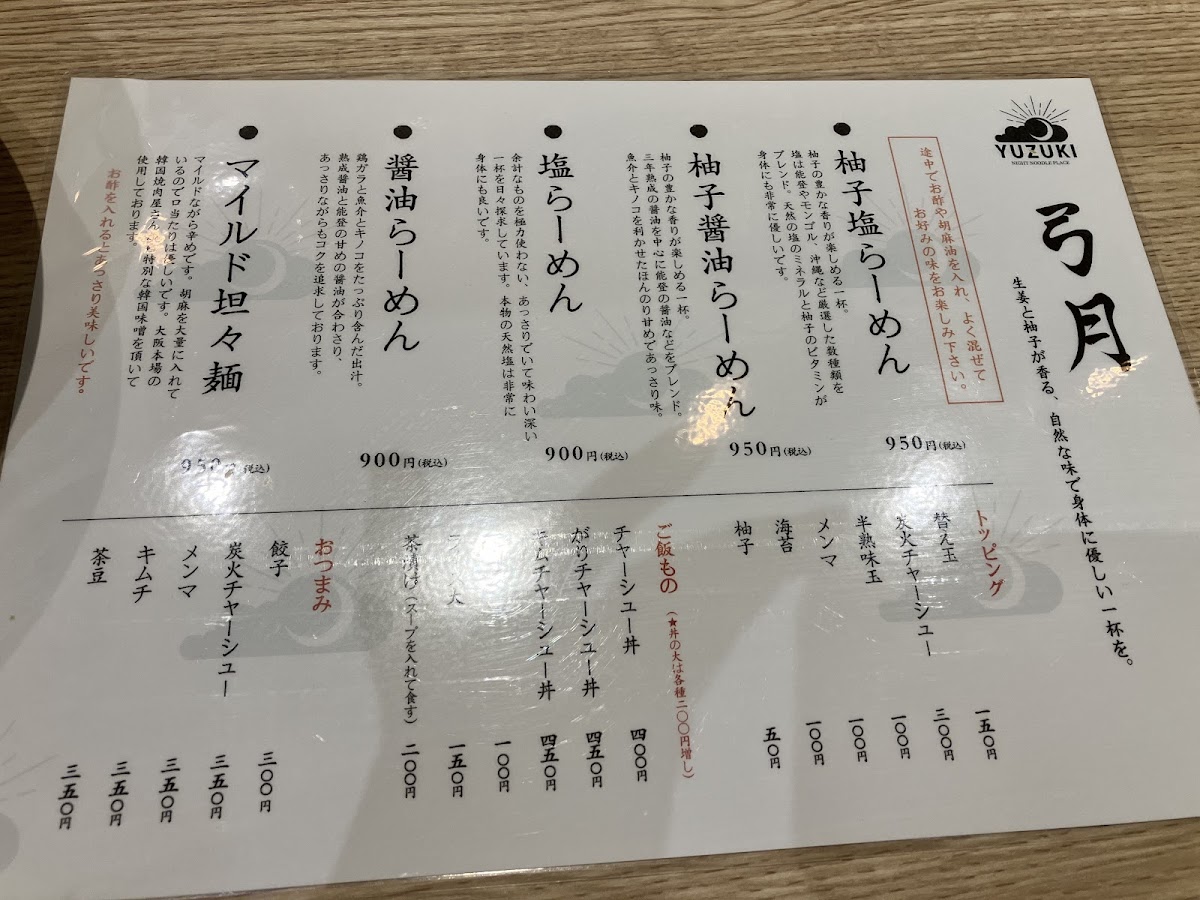 YUZUKI
NIGHT NOODLE PLACE
弓月
生姜と柚子が香る、自然な味で身体に優しい一杯を。
途中でお酢や胡麻油を入れ、よく混ぜて
お好みの味をお楽しみ下さい。
●柚子塩らーめん
柚子の豊かな香りが楽しめる一杯。
塩は能登やモンゴル、沖縄など厳選した数種類を
ブレンド。天然の塩のミネラルと柚子のビタミンが
身体にも非常に優しいです。
950円(税込)
●柚子醤油らーめん
柚子の豊かな香りが楽しめる一杯。
三年熟成の醤油を中心に能登の醤油などをブレンド。
魚介とキノコを利かせたほんのり甘めであっさり味。
950円(税込)
●塩らーめん
余計なものを極力使わない、あっさりでいて味わい深い
一杯を日々探求しています。本物の天然塩は非常に
身体にも良いです。
900円(税込)
●醤油らーめん
鶏ガラと魚介とキノコをたっぷり含んだ出汁。
熟成醤油と能登の甘めの醤油が合わさり、
あっさりながらもコクを追求しております。
900円(税込)
●マイルド坦々麺
マイルドながら辛めです。胡麻を大量に入れて
いるので口当たりは優しいです。大阪本場の
韓国焼肉屋さん 特別な韓国味噌を頂いて
使用しております。
お酢を入れるとあっさり美味しいです。
950 (税込)
トッピング
替え玉 一五〇円
炭火チャーシュー 三〇〇円
半熟味玉 一〇〇円
メンマ 一〇〇円
海苔 一〇〇円
柚子 五〇円
ご飯もの (★丼の大は各種二〇〇円増し)
チャーシュー丼 四〇〇円
がりチャーシュー丼 四五〇円
キムチャーシュー丼 四五〇円
一〇〇円
大 一五〇円
茶 (スープを入れて食す) 二〇〇円
おつまみ
餃子 三〇〇円
炭火チャーシュー 三五〇円
メンマ 三五〇円
キムチ 三五〇円
茶豆 三五〇円